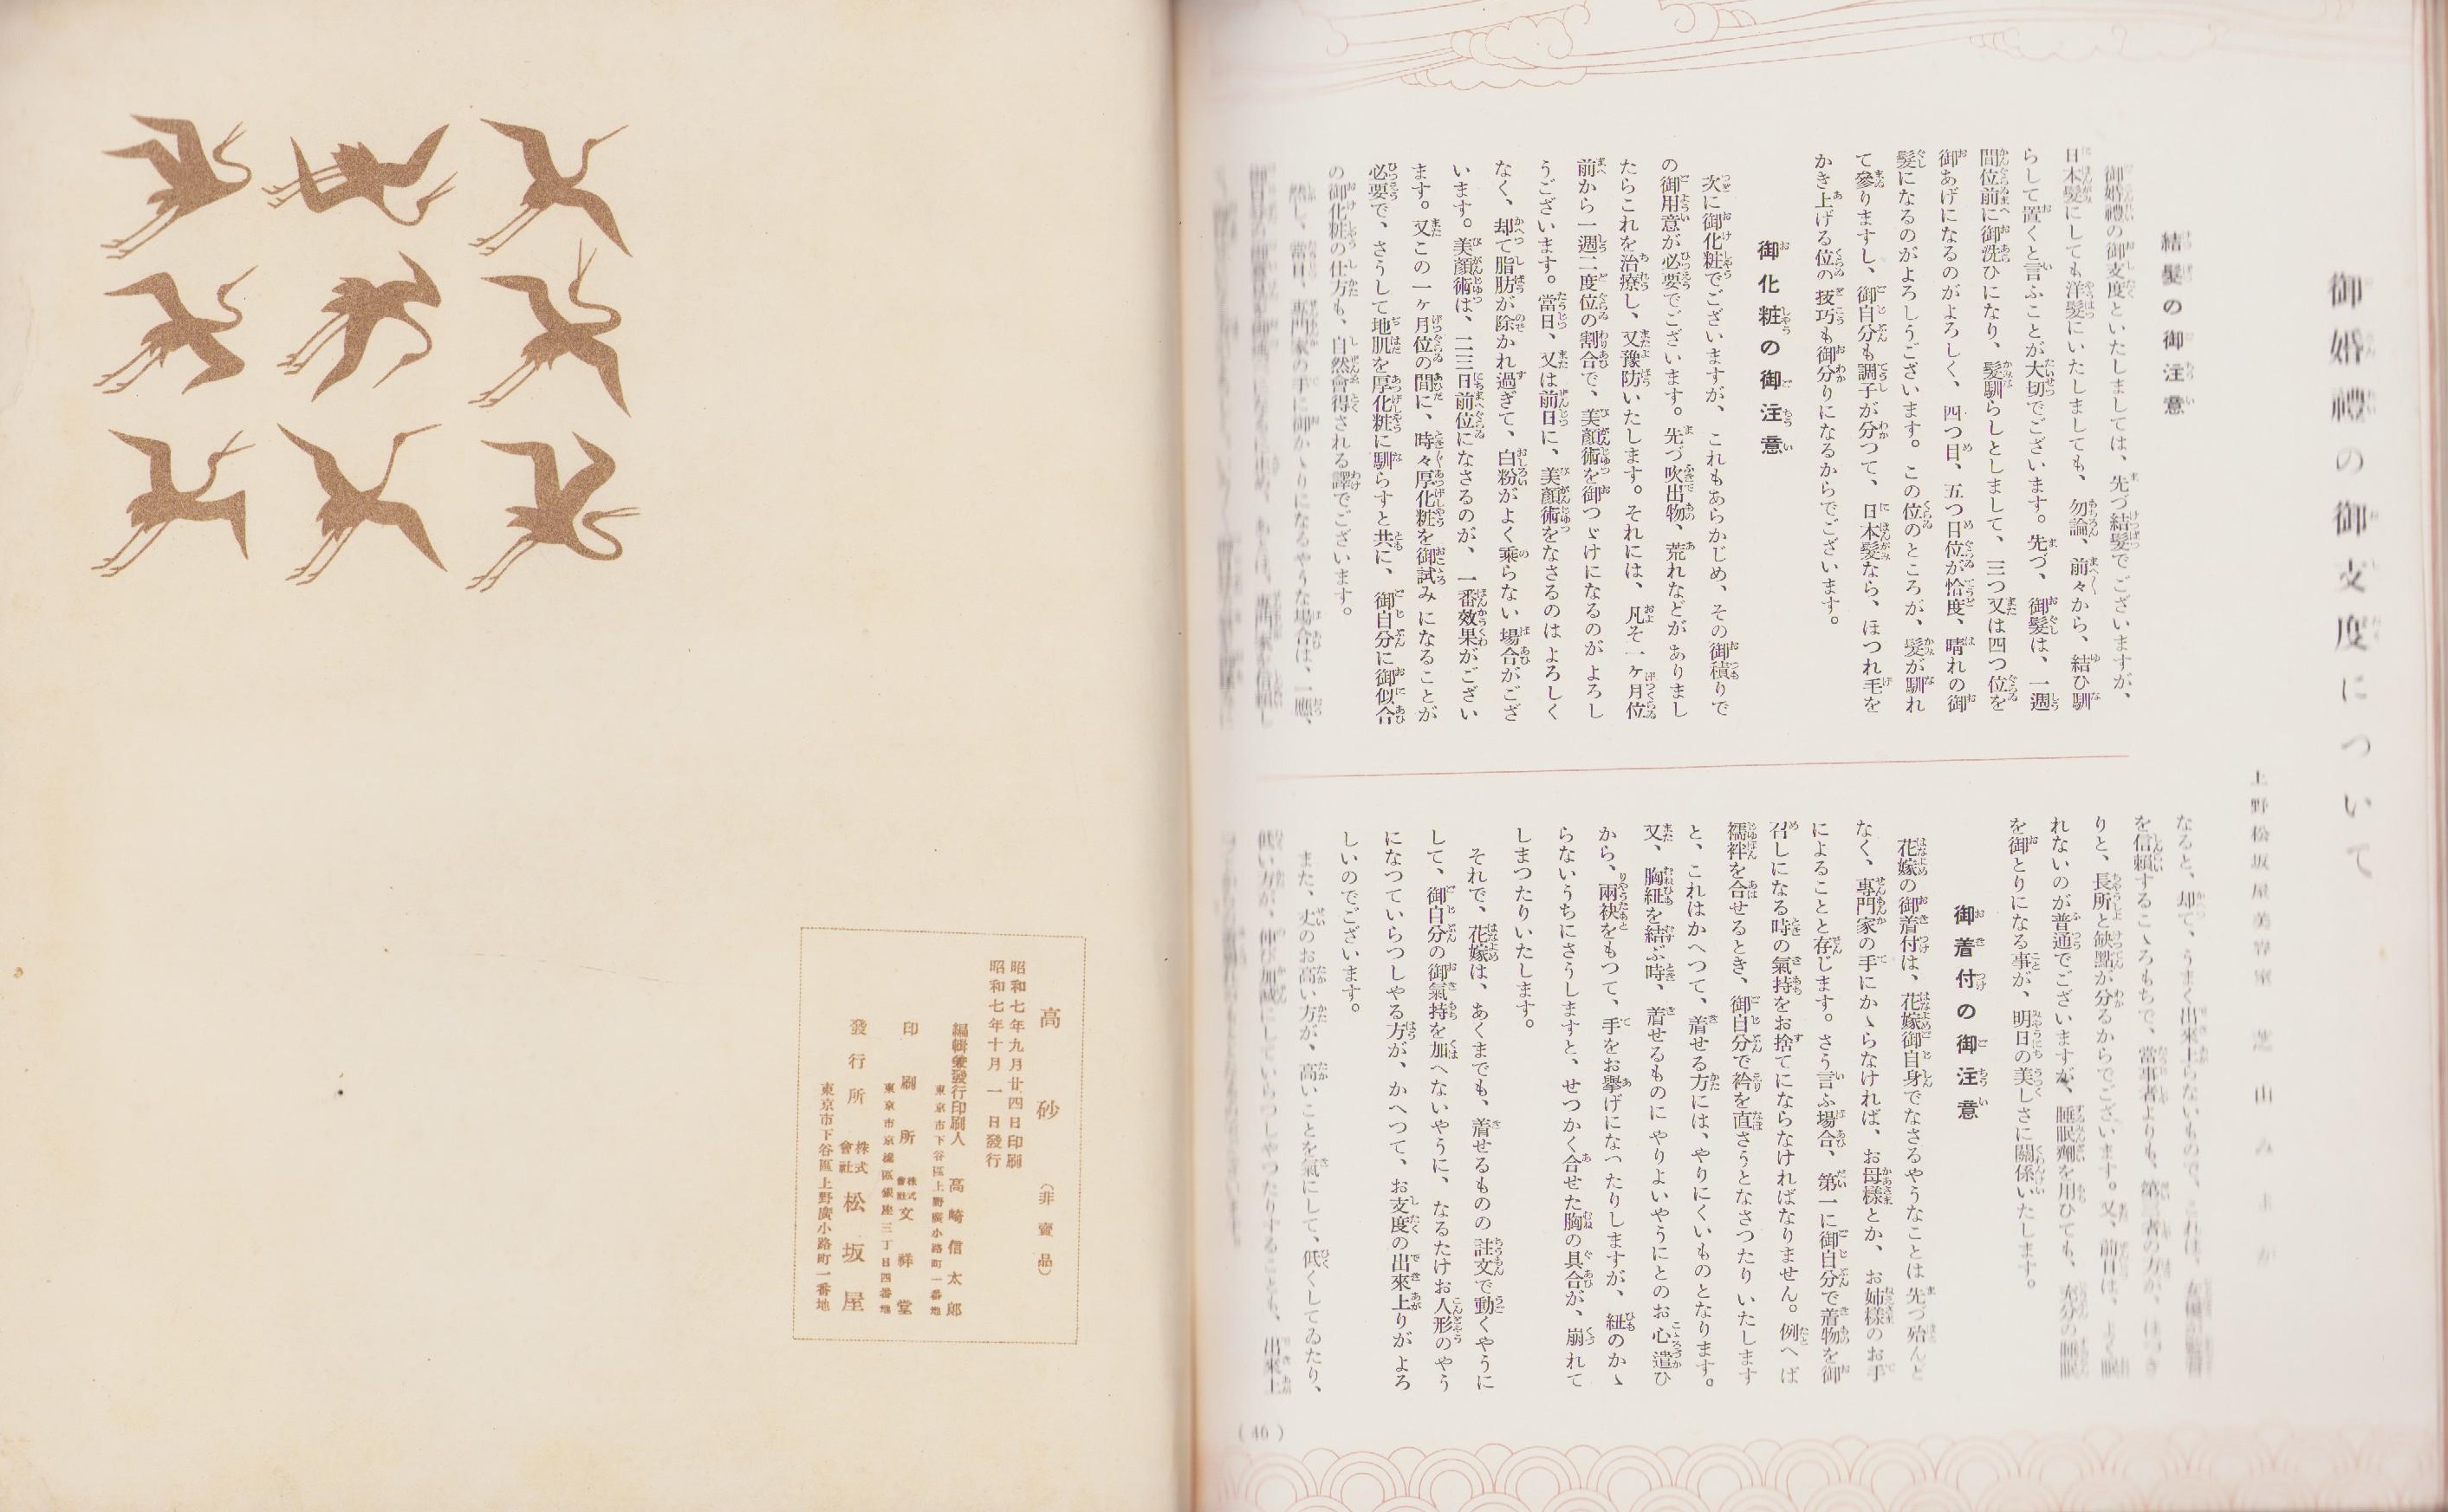 御婚禮の御支度について
上野松坂屋美容室 芝山み
結髮の御注意
御婚禮の御支度といたしましては、先づ結髮でございますが、
日本髮にしても洋髮にいたしましても、勿論、前々から、結ひ馴
らして置くと言ふことが大切でございます。先づ、御髮は、一週
間位前に御洗ひになり、髮馴らしとしまして、三つ又は四つ位を
御あげになるのがよろしく、四つ日、五つ日位が恰度、晴れの御
髮になるのがよろしうございます。この位のところが、髮が馴れ
て參りますし、御自分も調子が分つて、日本髮なら、ほつれ毛を
かき上げる位の技巧も御分りになるからでございます。
御化粧の御注意
次に御化粧でございますが、これもあらかじめ、その御積りで
の御用意が必要でございます。先づ吹出物、荒れなどがありまし
たらこれを治療し、又豫防いたします。それには、凡そ一ヶ月位
前から一週二度位の割合で、美顏術を御つゞけになるのがよろし
うございます。當日、又は前日に、美顏術をなさるのはよろしく
なく、却て脂肪が除かれ過ぎて、白粉がよく乘らない場合がござ
います。美顏術は、二三日前位になさるのが、一番效果がござい
ます。又この一ヶ月位の間に、時々厚化粧を御試みになることが
必要で、さうして地肌を厚化粧に馴らすと共に、御自分に御似合
の御化粧の仕方も、自然會得される譯でございます。
然し、當日、專門家の手に御かゝりになるやうな場合は、一應、
なると、却て、うまく出來上らないもので、これは、
を信賴するこゝろもちで、當事者よりも、第三者の方が、はつき
りと、長所と缺點が分るからでございます。又、前日は、よく眠
れないのが普通でございますが、睡眠劑を用ひても、充分の睡眠
を御とりになる事が、明日の美しさに關係いたします。
御着付の御注意
花嫁の御着付は、花嫁御自身でなさるやうなことは先づ殆んど
なく、專門家の手にかゝらなければ、お母様とか、お姉樣のお手
によることと存じます。さう言ふ場合、第一に御自分で着物を御
召しになる時の氣持をお捨てにならなければなりません。例へば
襦袢を合せるとき、御自分で衿を直さうとなさつたりいたします
と、これはかへつて、着せる方には、やりにくいものとなります。
又、胸紐を結ぶ時、着せるものにやりよいやうにとのお心遣ひ
から、兩袂をもつて、手をお擧げになつたりしますが、紐のかゝ
らないうちにさうしますと、せつかく合せた胸の具合が、崩れて
しまつたりいたします。
それで、花嫁は、あくまでも、着せるものの註文で動くやうに
して、御自分の御氣持を加へないやうに、なるたけお人形のやう
になつていらつしやる方が、かへつて、お支度の出來上りがよろ
しいのでございます。
また、丈のお高い方が、高いことを氣にして、低くしてゐたり、
低い方が、伸び加減にしていらつしやつたりすることも、出來上
(46)
高砂 (非賣品)
昭和七年九月廿四日印刷
昭和七年十月一日發行
編輯兼發行印刷人 高崎信太郎
東京市下谷區上野廣小路町一番地
印刷所 株式會社 文祥堂
東京市京橋區銀座三丁目四番地
發行所 株式會社 松坂屋
東京市下谷區上野廣小路町一番地